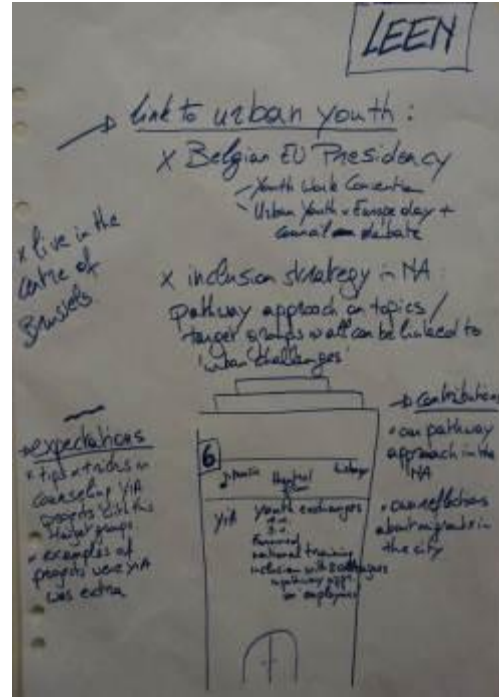 LEEN
link to urban youth :
x Belgian EU Presidency
- Youth Work Convention
- Urban Youth + Europe day +
debate
x live in the
centre of
Brussels
x inclusion strategy in NA :
pathway approach on topics /
target groups can be linked to
'urban challenges'
expectations
x tips + tricks in
counseling YiA
projects with this
target groups
x examples of
projects were YiA
was extra
6
YiA youth exchanges
national training
inclusion with colleagues
employees
→ contribution
• our pathway
approach in the
NA
• our reflections
about migrants in
the city